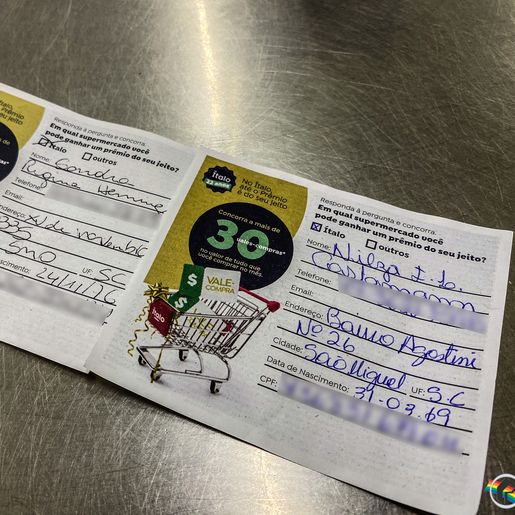 Ítalo,
Prêmio
seu jeito
Responda à pergunta e concorra.
Em qual supermercado você
pode ganhar um prêmio do seu jeito?
Ítalo outros
Nome:
Regina
Telefone:
Email:
Endereço: de novembro
335
SMO UF: SC
Nascimento: 24/11/76
Ítalo
22 anos
No Ítalo,
até o Prêmio
é do seu jeito
Concorra a mais de
30
vales-compras*
no valor de tudo que
você comprar no mês.
VALE-
COMPRA
$
$
Ítalo
Responda à pergunta e concorra.
Em qual supermercado você
pode ganhar um prêmio do seu jeito?
Ítalo outros
Nome: Nilza
Telefone:
Email:
Endereço: Bairro Agostini
Nº 26
Cidade: São Miguel UF: S.C
Data de Nascimento: 31-03.69
CPF: